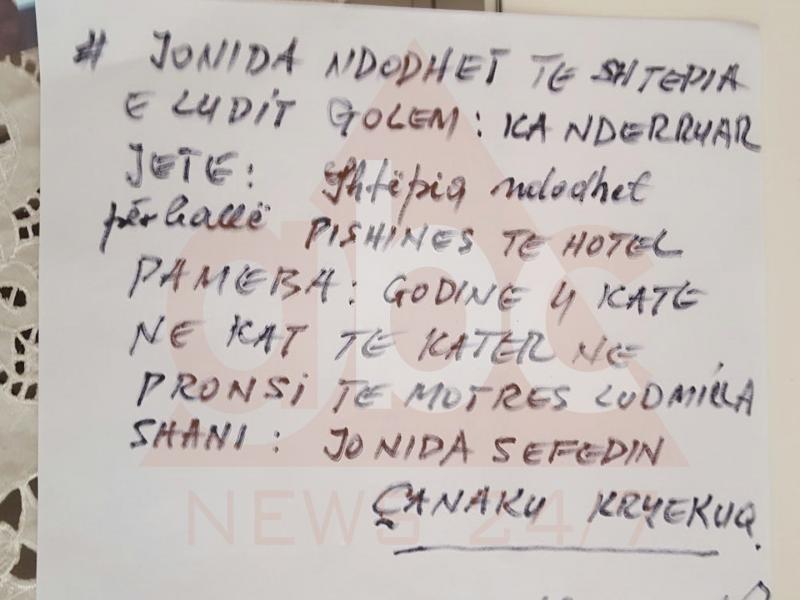 # JONIDA NDODHET TE SHTEPIA
E LUDIT GOLEM: KA NDERRUAR
JETE: Shtëpia ndodhet
përballë PISHINES TE HOTEL
PAMEBA: GODINE 4 KATE
NE KAT TE KATER NE
PRONSI TE MOTRES LUDMILLA
SHANI: JONIDA SEFEDIN
ÇANAKU KRYEKUQ.
abc
NEWS 24/7